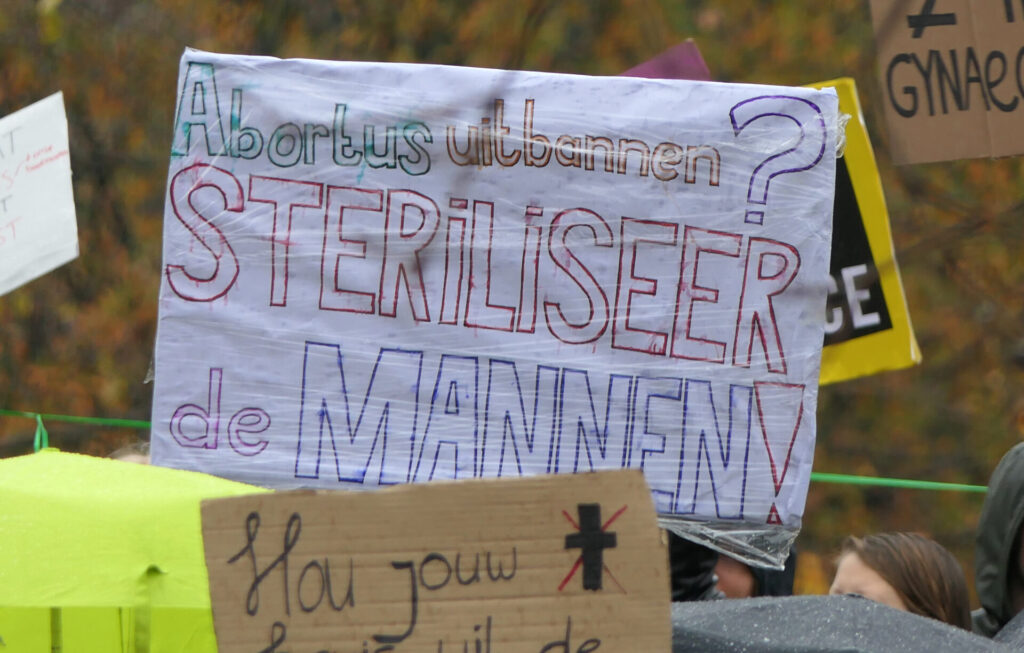 Abortus uitbannen?
STERiLiSEER
de MANNEN!
Hou jouw
uit de
CE
GYNAEC